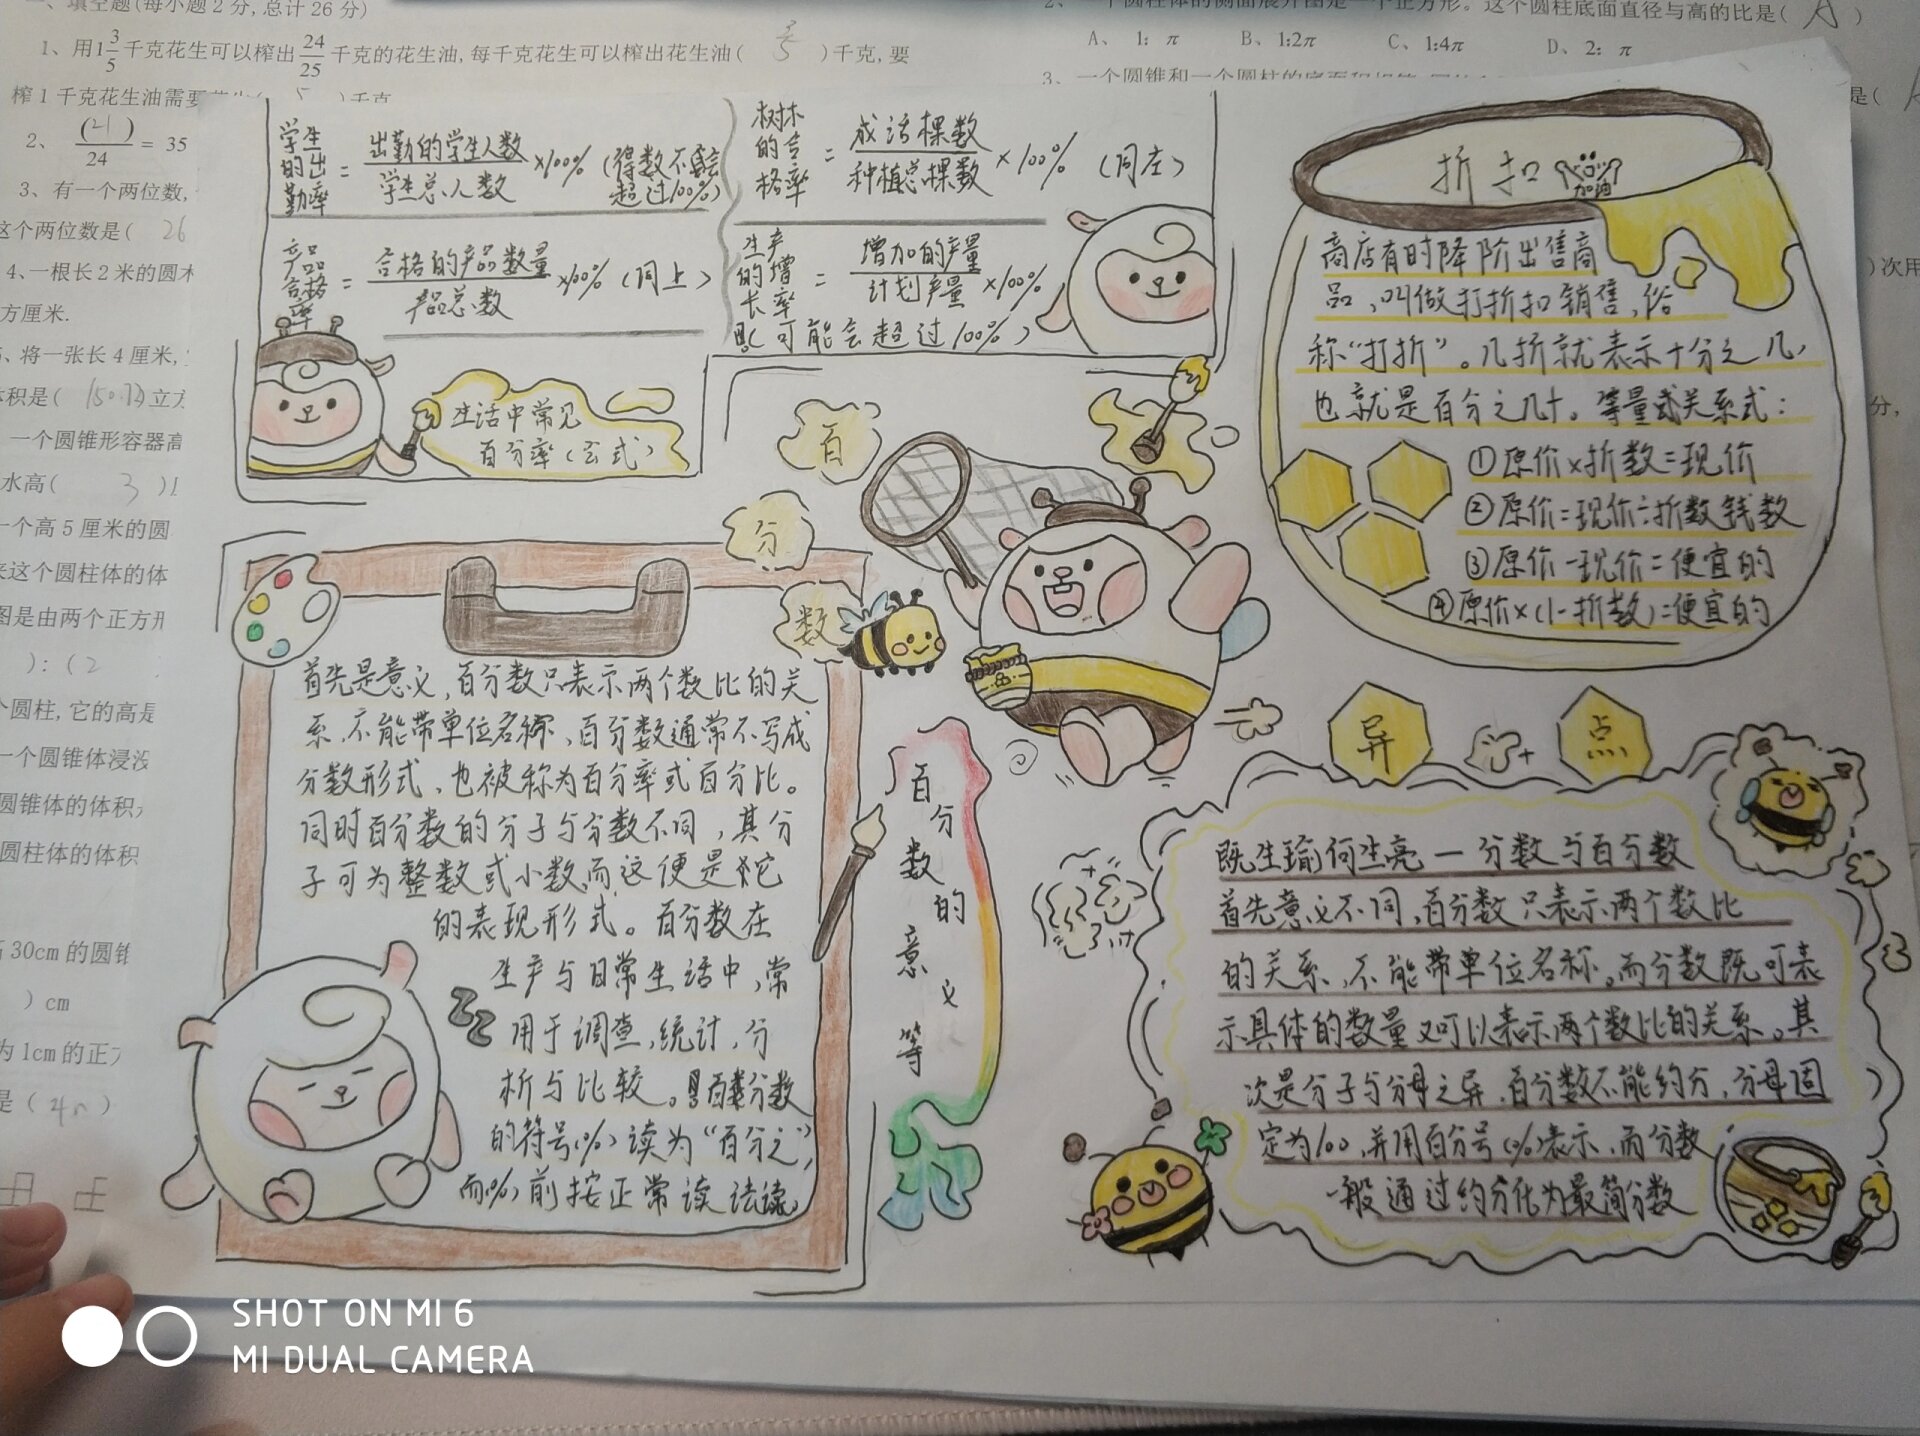 一、填空题(每小题2分,总计26分)
1、用1 3/5 千克花生可以榨出 24/25 千克的花生油,每千克花生可以榨出花生油( 3/5 )千克,要
榨1千克花生油需要
2、 (21)/24 = 35
3、有一个两位数,
这个两位数是( 26
4、一根长2米的圆木
方厘米.
、将一张长4厘米,
体积是( 150.72)立方
一个圆锥形容器高
水高( 3 )
一个高5厘米的圆
来这个圆柱体的体
图是由两个正方形
):(2
个圆柱,它的高是
一个圆锥体浸没
圆锥体的体积
圆柱体的体积
高30cm的圆锥
)cm
为1cm的正方
是(
2、一个圆柱体的侧面展开图是一个正方形。这个圆柱底面直径与高的比是( A )
A、 1: π B、1:2π C、1:4π D、2: π
3、一个圆锥和一个圆柱的底面积相等
是(
)次用
分,
学生的出勤率 = 出勤的学生人数/学生总人数 ×100% (得数不会超过100%)
树木的合格率 = 成活棵数/种植总棵数 ×100% (同左)
产品合格率 = 合格的产品数量/产品总数 ×100% (同上)
生产的增长率 = 增加的产量/计划产量 ×100%
(可能会超过100%)
生活中常见
百分率(公式)
百
分
数
折扣
加油
商店有时降阶出售商
品,叫做打折扣销售,俗
称“打折”。几折就表示十分之几,
也就是百分之几十。等量或关系式:
①原价×折数=现价
②原价=现价÷折数钱数
③原价-现价=便宜的
④原价×(1-折数)=便宜的
首先是意义,百分数只表示两个数比的关
系,不能带单位名称,百分数通常不写成
分数形式,也被称为百分率或百分比。
同时百分数的分子与分数不同,其分
子可为整数或小数,而这便是它
的表现形式。百分数在
生产与日常生活中,常
用于调查,统计,分
析与比较。百分数
的符号(%)读为“百分之”,
而%前按正常读法读。
百分数的意义等
异点
既生瑜何生亮—分数与百分数
首先意义不同,百分数只表示两个数比
的关系,不能带单位名称。而分数既可表
示具体的数量又可以表示两个数比的关系。其
次是分子与分母之异,百分数不能约分,分母固
定为100,并用百分号(%)表示,而分数
一般通过约分化为最简分数
SHOT ON MI 6
MI DUAL CAMERA